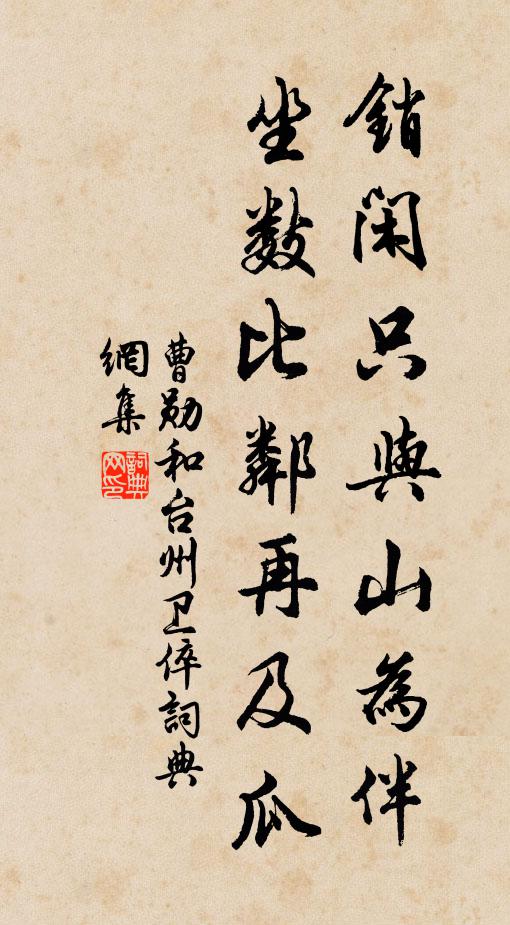 銷閑只與山為伴
坐数比鄰再及瓜
曹勋和台州卫倅詞典
網集
詞典
网印